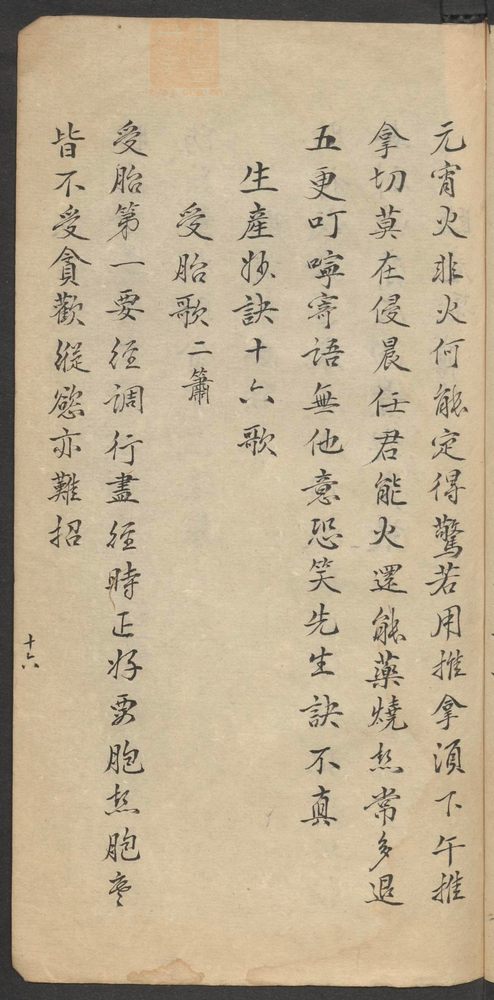 元宵火非火何能定得驚若用推拿須下午推
拿切莫在侵晨任君能火還能藥燒热常多退
五更叮嚀寄語無他意恐笑先生訣不真
生產妙訣十六歌
受胎歌二簫
受胎第一要經調行盡經時正好要胞热胞寒
皆不受貪歡縱慾亦難招
十六